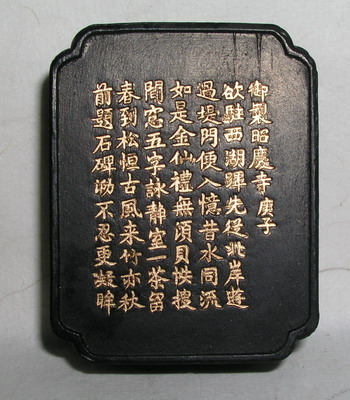 御製昭慶寺 庚子
欲駐西湖蹕先從北岸遊
過堤門便入憶昔水同流
如是金仙禮無須貝帙搜
閒窓五字詠靜室一茶留
春到松古風来竹亦秋
前題石碑泐不忍更凝眸